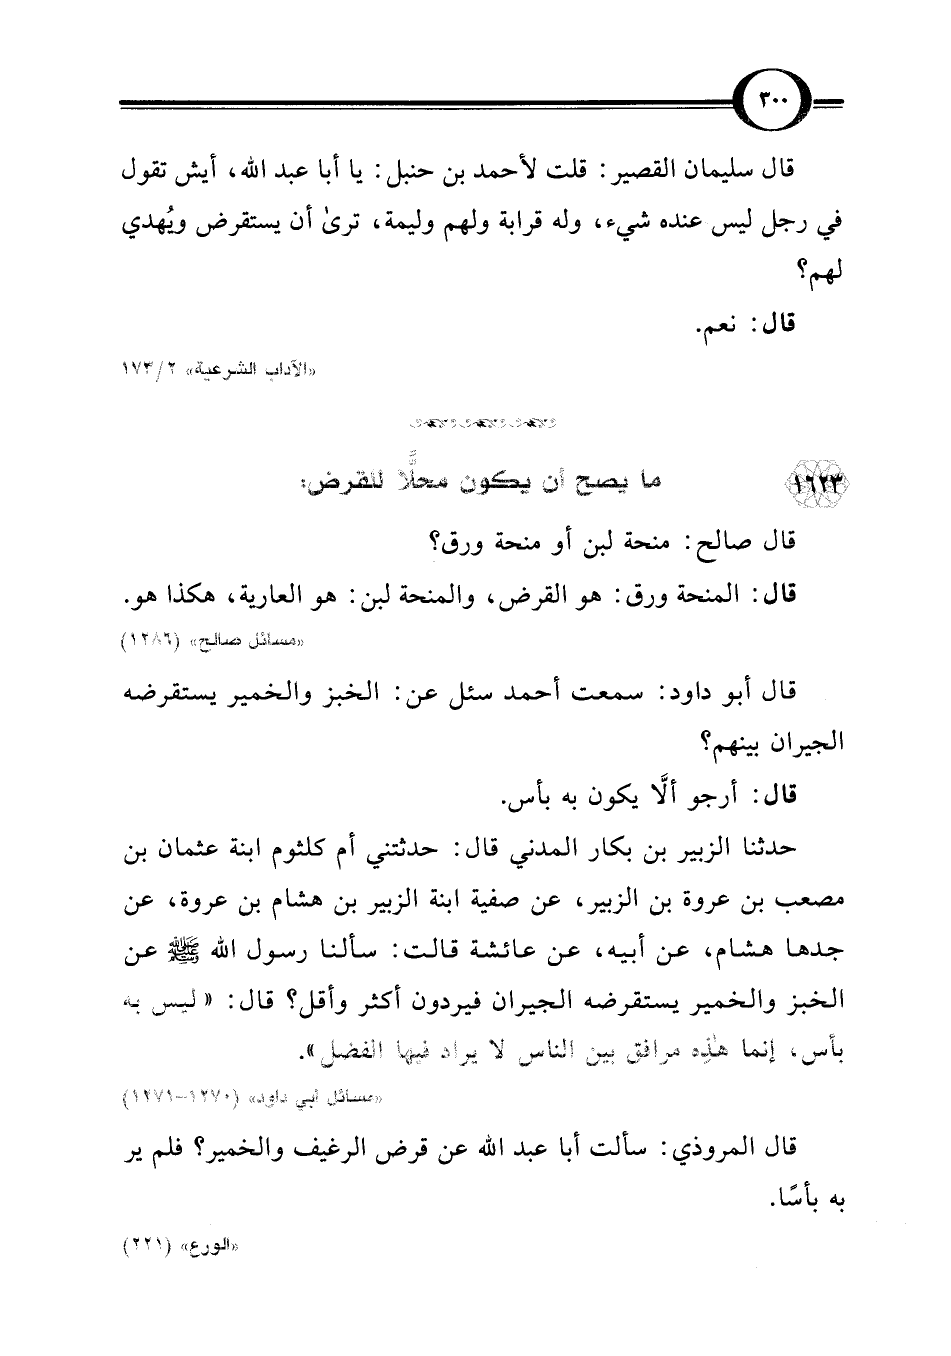 ٣٠٠
قال سليمان القصير: قلت لأحمد بن حنبل: يا أبا عبد الله، أيش تقول
في رجل ليس عنده شيء، وله قرابة ولهم وليمة، ترىٰ أن يستقرض ويُهدي
لهم؟
قال: نعم.
«الآداب الشرعية» ٢/ ١٧٣
١٦٢٣ ما يصح أن يكون محلًّا للقرض:
قال صالح: منحة لبن أو منحة ورق؟
قال: المنحة ورق: هو القرض، والمنحة لبن: هو العارية، هكذا هو.
«مسائل صالح» (١٢٨٦)
قال أبو داود: سمعت أحمد سئل عن: الخبز والخمير يستقرضه
الجيران بينهم؟
قال: أرجو ألَّا يكون به بأس.
حدثنا الزبير بن بكار المدني قال: حدثتني أم كلثوم ابنة عثمان بن
مصعب بن عروة بن الزبير، عن صفية ابنة الزبير بن هشام بن عروة، عن
جدها هشام، عن أبيه، عن عائشة قالت: سألنا رسول الله ﷺ عن
الخبز والخمير يستقرضه الجيران فيردون أكثر وأقل؟ قال: «ليس به
بأس، إنما هذِه مرافق بين الناس لا يراد فيها الفضل».
«مسائل أبي داود» (١٢٧٠-١٢٧١)
قال المروذي: سألت أبا عبد الله عن قرض الرغيف والخمير؟ فلم ير
به بأسًا.
«الورع» (٢٢١)